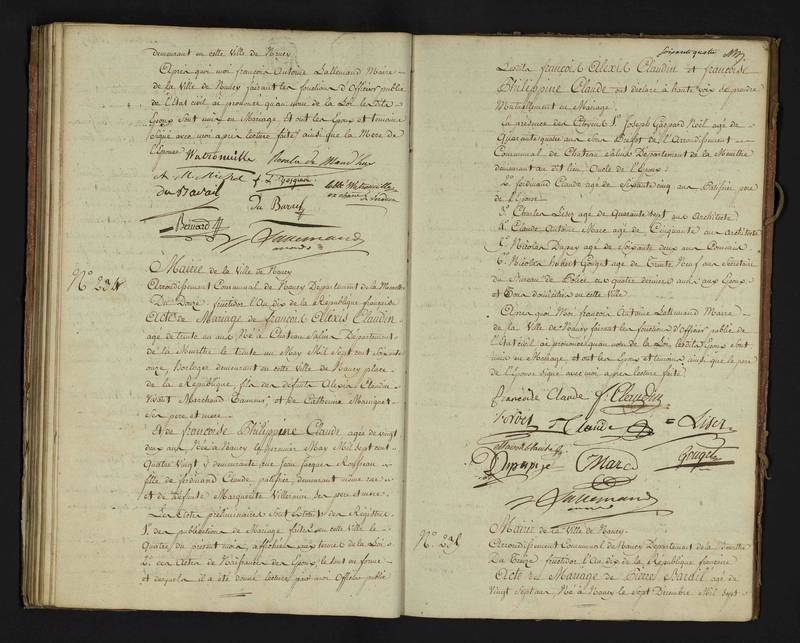 demeurant en cette Ville de Nancy
Après quoi moi françois Antoine Lallemand Maire
de la Ville de Nancy faisant les fonction d'Officier public
de l'Etat civil ai prononcé qu'au nom de la Loi lesdits
Epoux sont unis en Mariage Et ont les Epoux et temoins
signé avec moi après lecture faite ainsi que la Mere de
l'Epouse Watronville
A M Michel
du Barail
Du Barail
Bernard
Lallemand
maire
N° 234
Mairie de la Ville de Nancy
Arrondissement Communal de Nancy Département de la Meurthe
Du Douze fructidor l'An dix de la République française
Acte de Mariage de françois Alexis Claudin
agé de trente un ans Né à Chateau Salin Département
de la Meurthe le trente un May Mil Sept cent Soixante
onze Horloger demeurant en cette Ville de Nancy place
de la République, fils des defunts Alexis Claudin
vivant Marchand Tanneur, et de Catherine
Ses pere et mere
Et de françoise Philippine Claude agée de vingt
deux ans Née à Nancy le premier May Mil Sept cent
Quatre Vingt y demeurante rue Jean Jacques Rousseau
fille de ferdinand Claude patissier, demeurant même rue
et de Defunte Marguerite Villemain ses pere et mere
Les Actes preliminaires sont Extraits des Registres
1° des publications de Mariage faites en cette Ville le
Quatre du present mois, affichées aux termes de la Loi
2° des Actes de Naissances des Epoux, le tout en forme
et desquels il a été donné lecture par moi Officier public
soixante quatre
Lesdits françois Alexis Claudin et francoise
Philippine Claude ont déclaré à haute voix se prendre
Mutuellement en Mariage
En presence des Citoyens 1° Joseph Gaspard Noël agé de
Quarante quatre ans Sous Prefet de l'Arrondissement
Communal de Chateau Salins Département de la Meurthe
demeurant au dit lieu, Oncle de l'Epoux
2° ferdinand Claude agé de Soixante cinq ans Patissier pere
de l'Epouse
3° Charles Liser agé de Quarante Sept ans Architecte
4° Claude Antoine Marc agé de Cinquante ans Architecte
5° Nicolas Dupuy agé de Soixante deux ans
6° Nicolas hubert Gouget agé de Trente Neuf ans Secrétaire
du Bureau de Police les quatre derniers amis aux Epoux
et Tous domiciliés en cette Ville
Après quoi Moi françois Antoine Lallemand Maire
de la Ville de Nancy faisant les fonction d'Officier public de
l'Etat civil ai prononcé qu'au nom de la Loi lesdits Epoux sont
unis en Mariage et ont les Epoux et temoins, ainsi que le pere
de l'Epouse signé avec moi après lecture faite
francoise Claude f. Claudin
Claude Liser
Marc Gouget
Lallemand
maire
N° 235
Mairie de la Ville de Nancy
Arrondissement Communal de Nancy Département de la Meurthe
Du Treize fructidor l'An dix de la République française
Acte de Mariage de Pierre Bardil agé de
Vingt Sept ans Né à Nancy le Sept Décembre Mil Sept